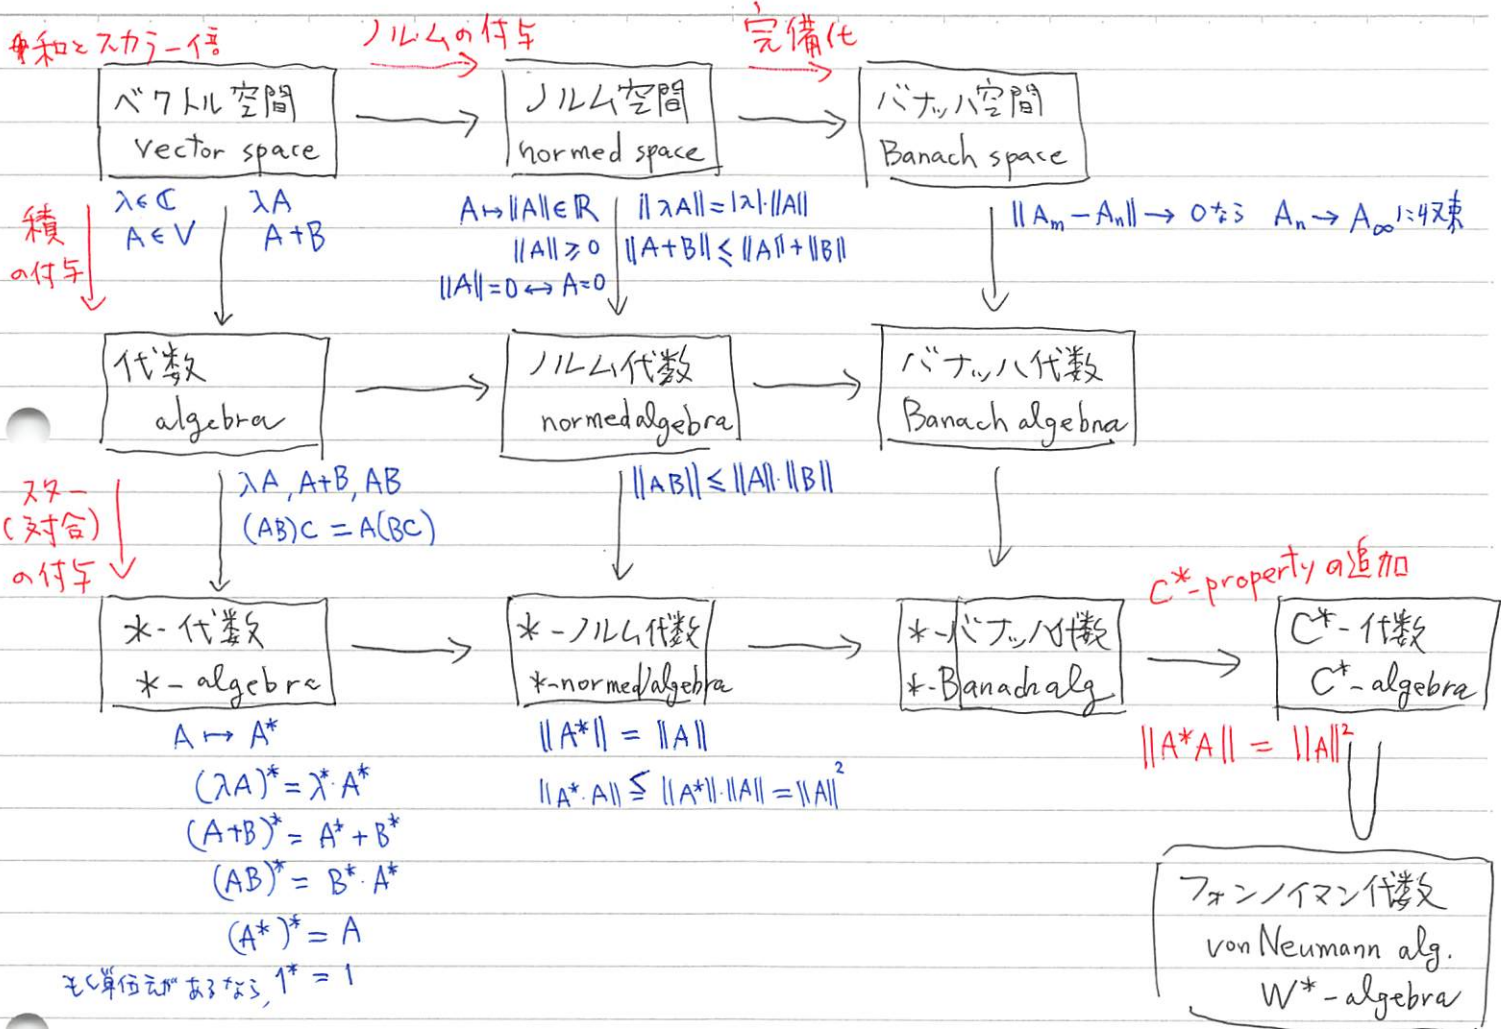 和とスカラー倍
ノルムの付与
完備化
ベクトル空間
vector space
ノルム空間
normed space
バナッハ空間
Banach space
積
の付与
λ∈ℂ
A∈V
λA
A+B
A↦‖A‖∈ℝ
‖A‖≥0
‖A‖=0↔A=0
‖λA‖=|λ|·‖A‖
‖A+B‖≤‖A‖+‖B‖
‖Am−An‖→0なら An→A∞に収束
代数
algebra
ノルム代数
normed algebra
バナッハ代数
Banach algebra
スター
(対合)
の付与
λA, A+B, AB
(AB)C = A(BC)
‖AB‖≤‖A‖·‖B‖
C*-propertyの追加
*-代数
*-algebra
*-ノルム代数
*-normed algebra
*-バナッハ代数
*-Banach alg
C*-代数
C*-algebra
A↦A*
(λA)*=λ*·A*
(A+B)*=A*+B*
(AB)*=B*·A*
(A*)*=A
もし単位元があるなら, 1*=1
‖A*‖=‖A‖
‖A*·A‖≦‖A*‖·‖A‖=‖A‖²
‖A*A‖=‖A‖²
フォンノイマン代数
von Neumann alg.
W*-algebra